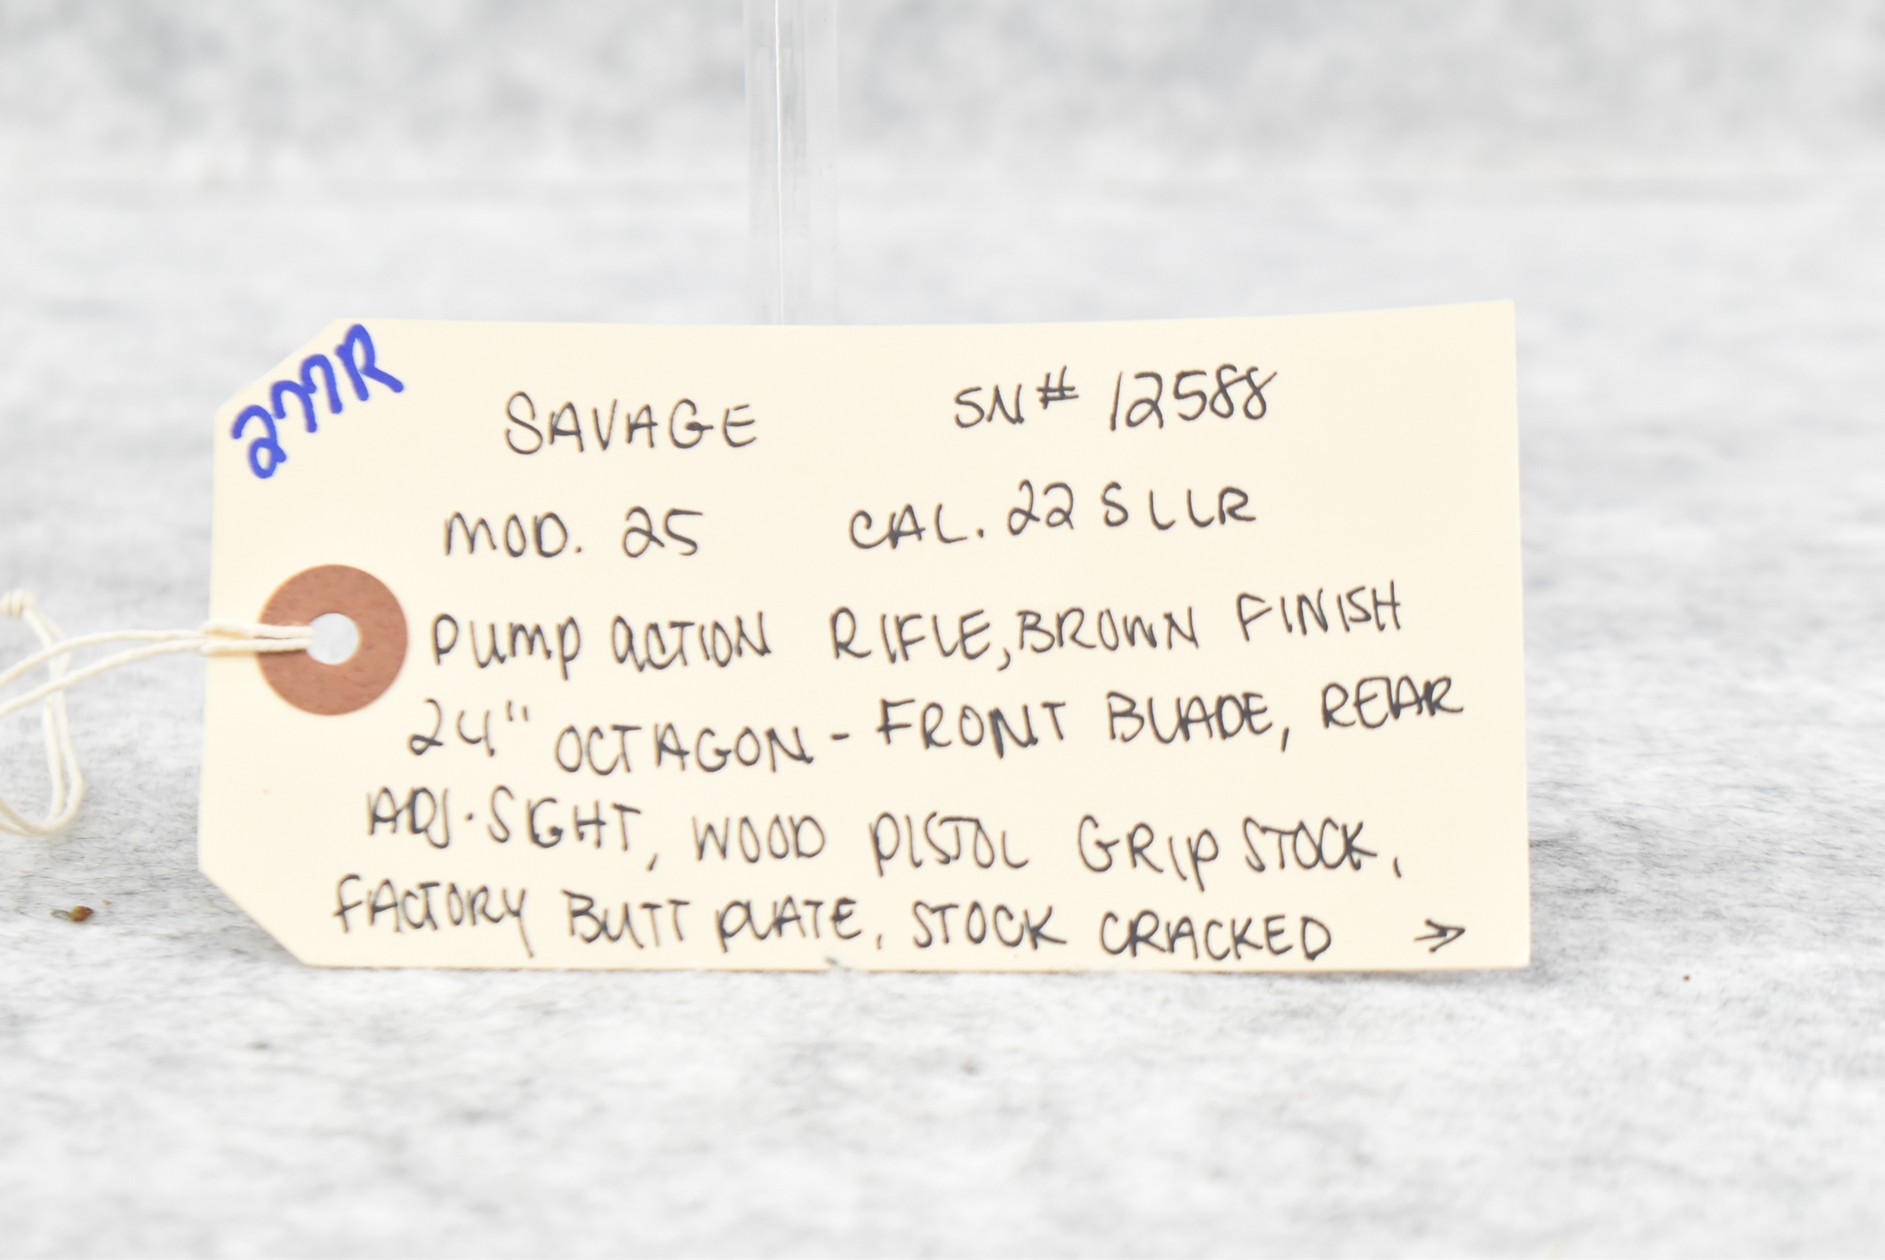 277R
SAVAGE SN# 12588
MOD. 25 CAL. 22 S L LR
PUMP ACTION RIFLE, BROWN FINISH
24" OCTAGON - FRONT BLADE, REAR
ADJ. SIGHT, WOOD PISTOL GRIP STOCK,
FACTORY BUTT PLATE, STOCK CRACKED →